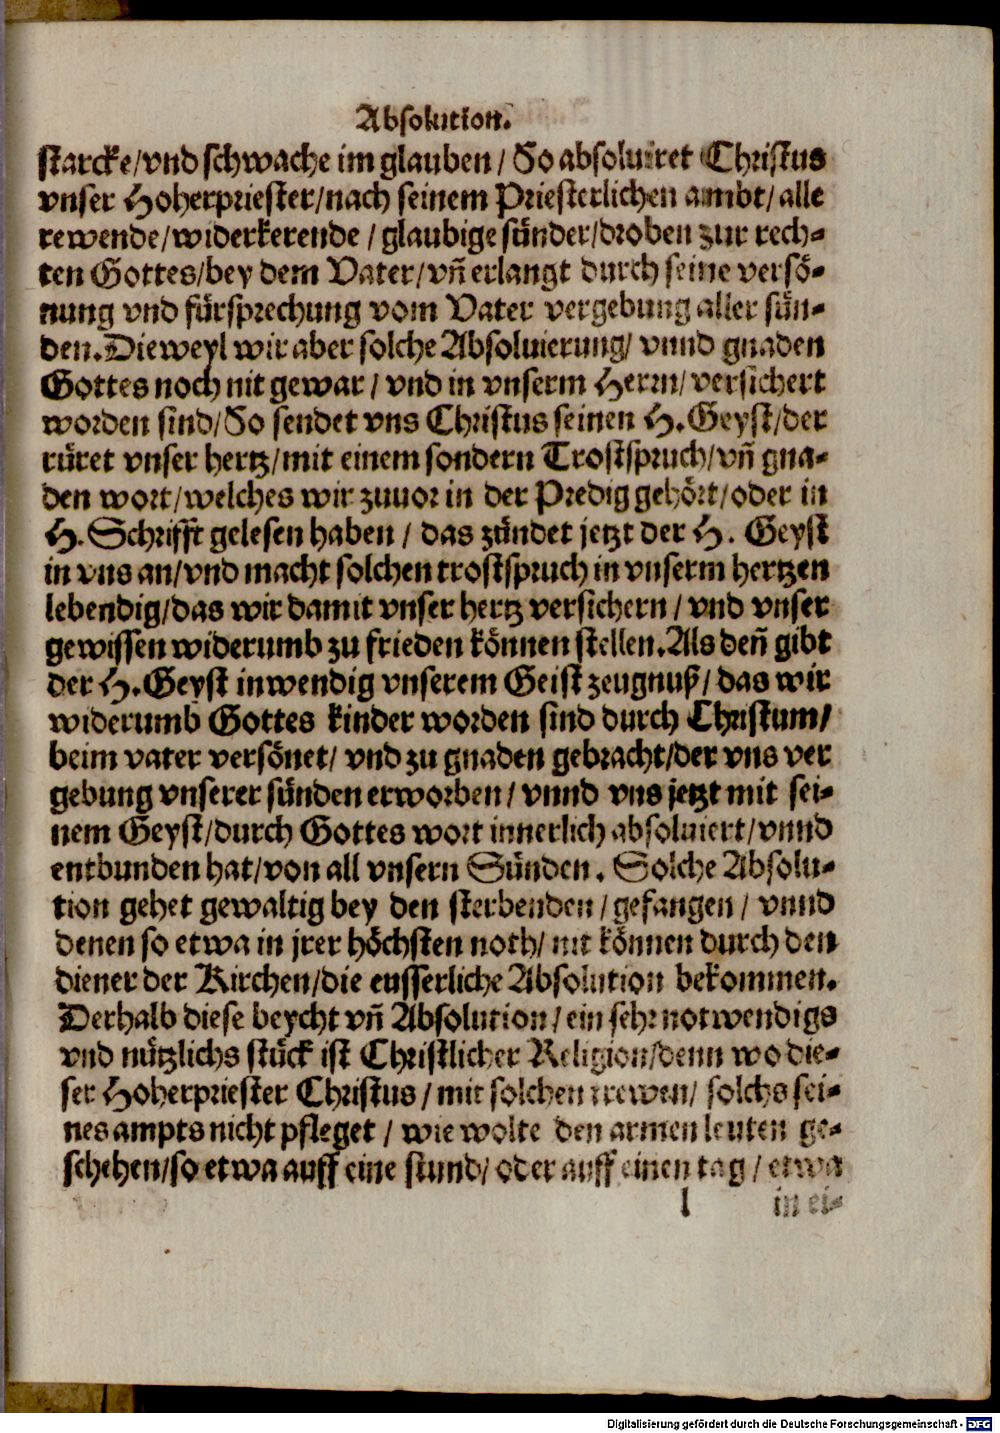 Absolution.
starcke/vnd schwache im glauben/ So absoluiret Christus
vnser Hoherpriester/nach seinem Priesterlichen ambt/ alle
rewende/widerkerende / glaubige sünder/droben zur rech-
ten Gottes/bey dem Vater/vñ erlangt durch seine versö-
nung vnd fürsprechung vom Vater vergebung aller sün-
den. Dieweyl wir aber solche Absoluierung/ vnnd gnaden
Gottes noch nit gewar / vnd in vnserm Herrn/ versichert
worden sind/ So sendet vns Christus seinen H. Geyst/der
rüret vnser hertz/mit einem sondern Trostspruch/vñ gna-
den wort/welches wir zuuor in der Predig gehört/oder in
H. Schrifft gelesen haben / das zündet jetzt der H. Geyst
in vns an/vnd macht solchen trostspruch in vnserm hertzen
lebendig/das wir damit vnser hertz versichern / vnd vnser
gewissen widerumb zu frieden können stellen. Als deñ gibt
der H. Geyst inwendig vnserem Geist zeugnuß/ das wir
widerumb Gottes kinder worden sind durch Christum/
beim vater versönet/ vnd zu gnaden gebracht/der vns ver
gebung vnserer sünden erworben/ vnnd vns jetzt mit sei-
nem Geyst/durch Gottes wort innerlich absoluiert/vnnd
entbunden hat/von all vnsern Sünden. Solche Absolu-
tion gehet gewaltig bey den sterbenden /gefangen / vnnd
denen so etwa in jrer höchsten noth/ nit können durch den
diener der Kirchen/die eusserliche Absolution bekommen.
Derhalb diese beycht vñ Absolution/ein sehr notwendigs
vnd nützlichs stück ist Christlicher Religion/denn wo die-
ser Hoherpriester Christus / mit solchen trewen/ solchs sei-
nes ampts nicht pfleget / wie wolte den armen leuten ge-
schehen/so etwa auff eine stund/ oder auff einen tag / etwa
l in ei-
Digitalisierung gefördert durch die Deutsche Forschungsgemeinschaft - DFG